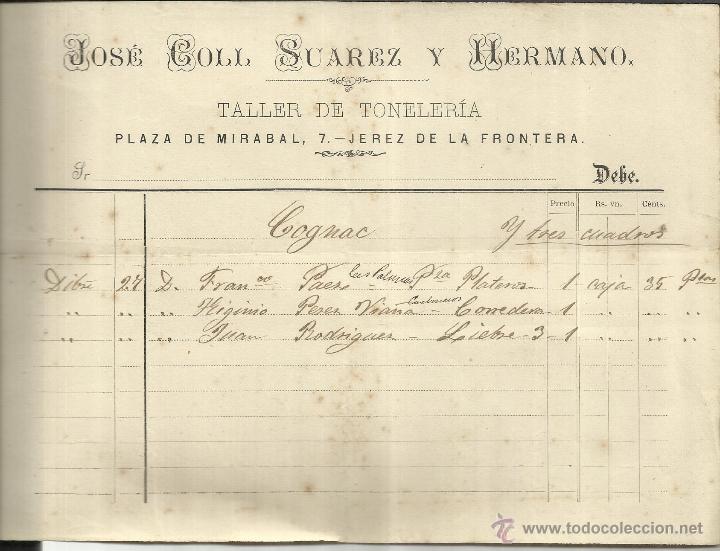 José Coll Suarez y Hermano.
Taller de Tonelería
Plaza de Mirabal, 7.—Jerez de la Frontera.
Sr Debe.
Precio Rs. vn. Cents.
Cognac Y tres cuadros
Dibre 27 D. Franco Paez Las Palmas Pza Plateros 1 caja 35 Ptas
" " " Higinio Perez Viana - Corredera 1 " " "
" " " Juan Rodriguez - Liebre - 3 - 1 " " "
www.todocoleccion.net